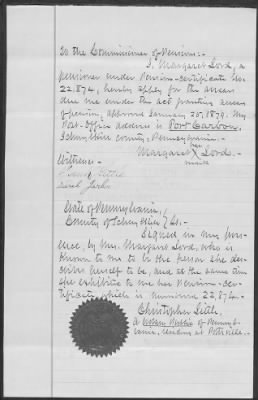 To the Commissioner of Pensions:-
I, Margaret Lord, a
pensioner under Pension-Certificate No.
22,874, hereby apply for the arrears
due me under the act granting arrears
of pension, approved January 25, 1879. My
Post-Office address is Port Carbon,
Schuylkill county, Pennsylvania.-
her
Margaret X Lord.-
mark
Witness:-
Sarah
State of Pennsylvania,
County of Schuylkill, ss.
Signed in my pres-
ence, by Mrs. Margaret Lord, who is
known to me to be the person she des-
cribes herself to be, and at the same time
she exhibited to me her Pension-Cer-
tificate, which is numbered 22,874.-
Christopher Little,
A Notary Public of Pennsyl-
vania, residing at Pottsville.-